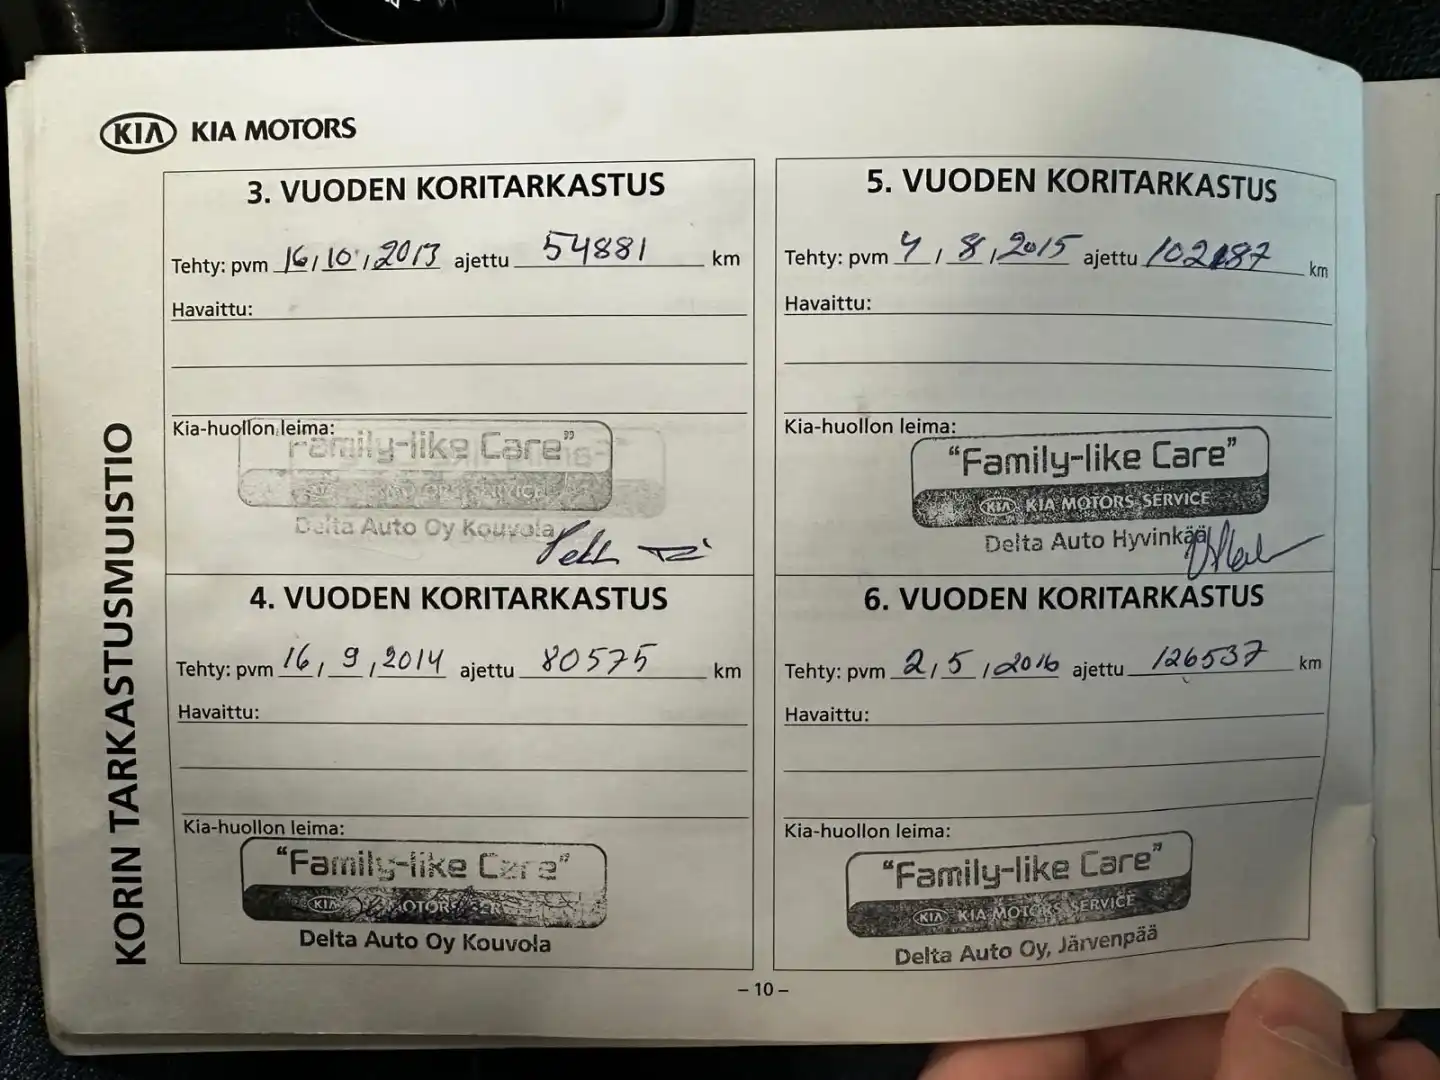 KIA KIA MOTORS
KORIN TARKASTUSMUISTIO
3. VUODEN KORITARKASTUS
Tehty: pvm 16 / 10 / 2013 ajettu 54881 km
Havaittu:
Kia-huollon leima:
"Family-like Care"
Delta Auto Oy Kouvola
4. VUODEN KORITARKASTUS
Tehty: pvm 16 / 9 / 2014 ajettu 80575 km
Havaittu:
Kia-huollon leima:
"Family-like Care"
KIA MOTORS SERVICE
Delta Auto Oy Kouvola
5. VUODEN KORITARKASTUS
Tehty: pvm 4 / 8 / 2015 ajettu 102187 km
Havaittu:
Kia-huollon leima:
"Family-like Care"
KIA KIA MOTORS SERVICE
Delta Auto Hyvinkää
6. VUODEN KORITARKASTUS
Tehty: pvm 2 / 5 / 2016 ajettu 126537 km
Havaittu:
Kia-huollon leima:
"Family-like Care"
KIA KIA MOTORS SERVICE
Delta Auto Oy, Järvenpää
– 10 –